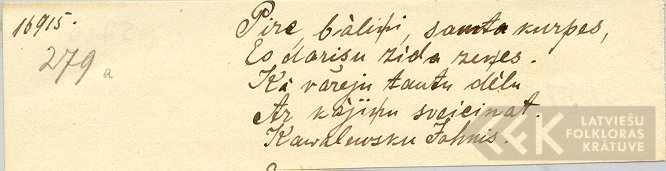 16915.
279 a
Pirc bāliņi, samta kurpes,
Es darišu zida zeķes.
Kā vareju tautu dēlu
Ar kājiņu sveicinat.
Kawalewsku Jahnis.
LATVIEŠU
FOLKLORAS
KRĀTUVE